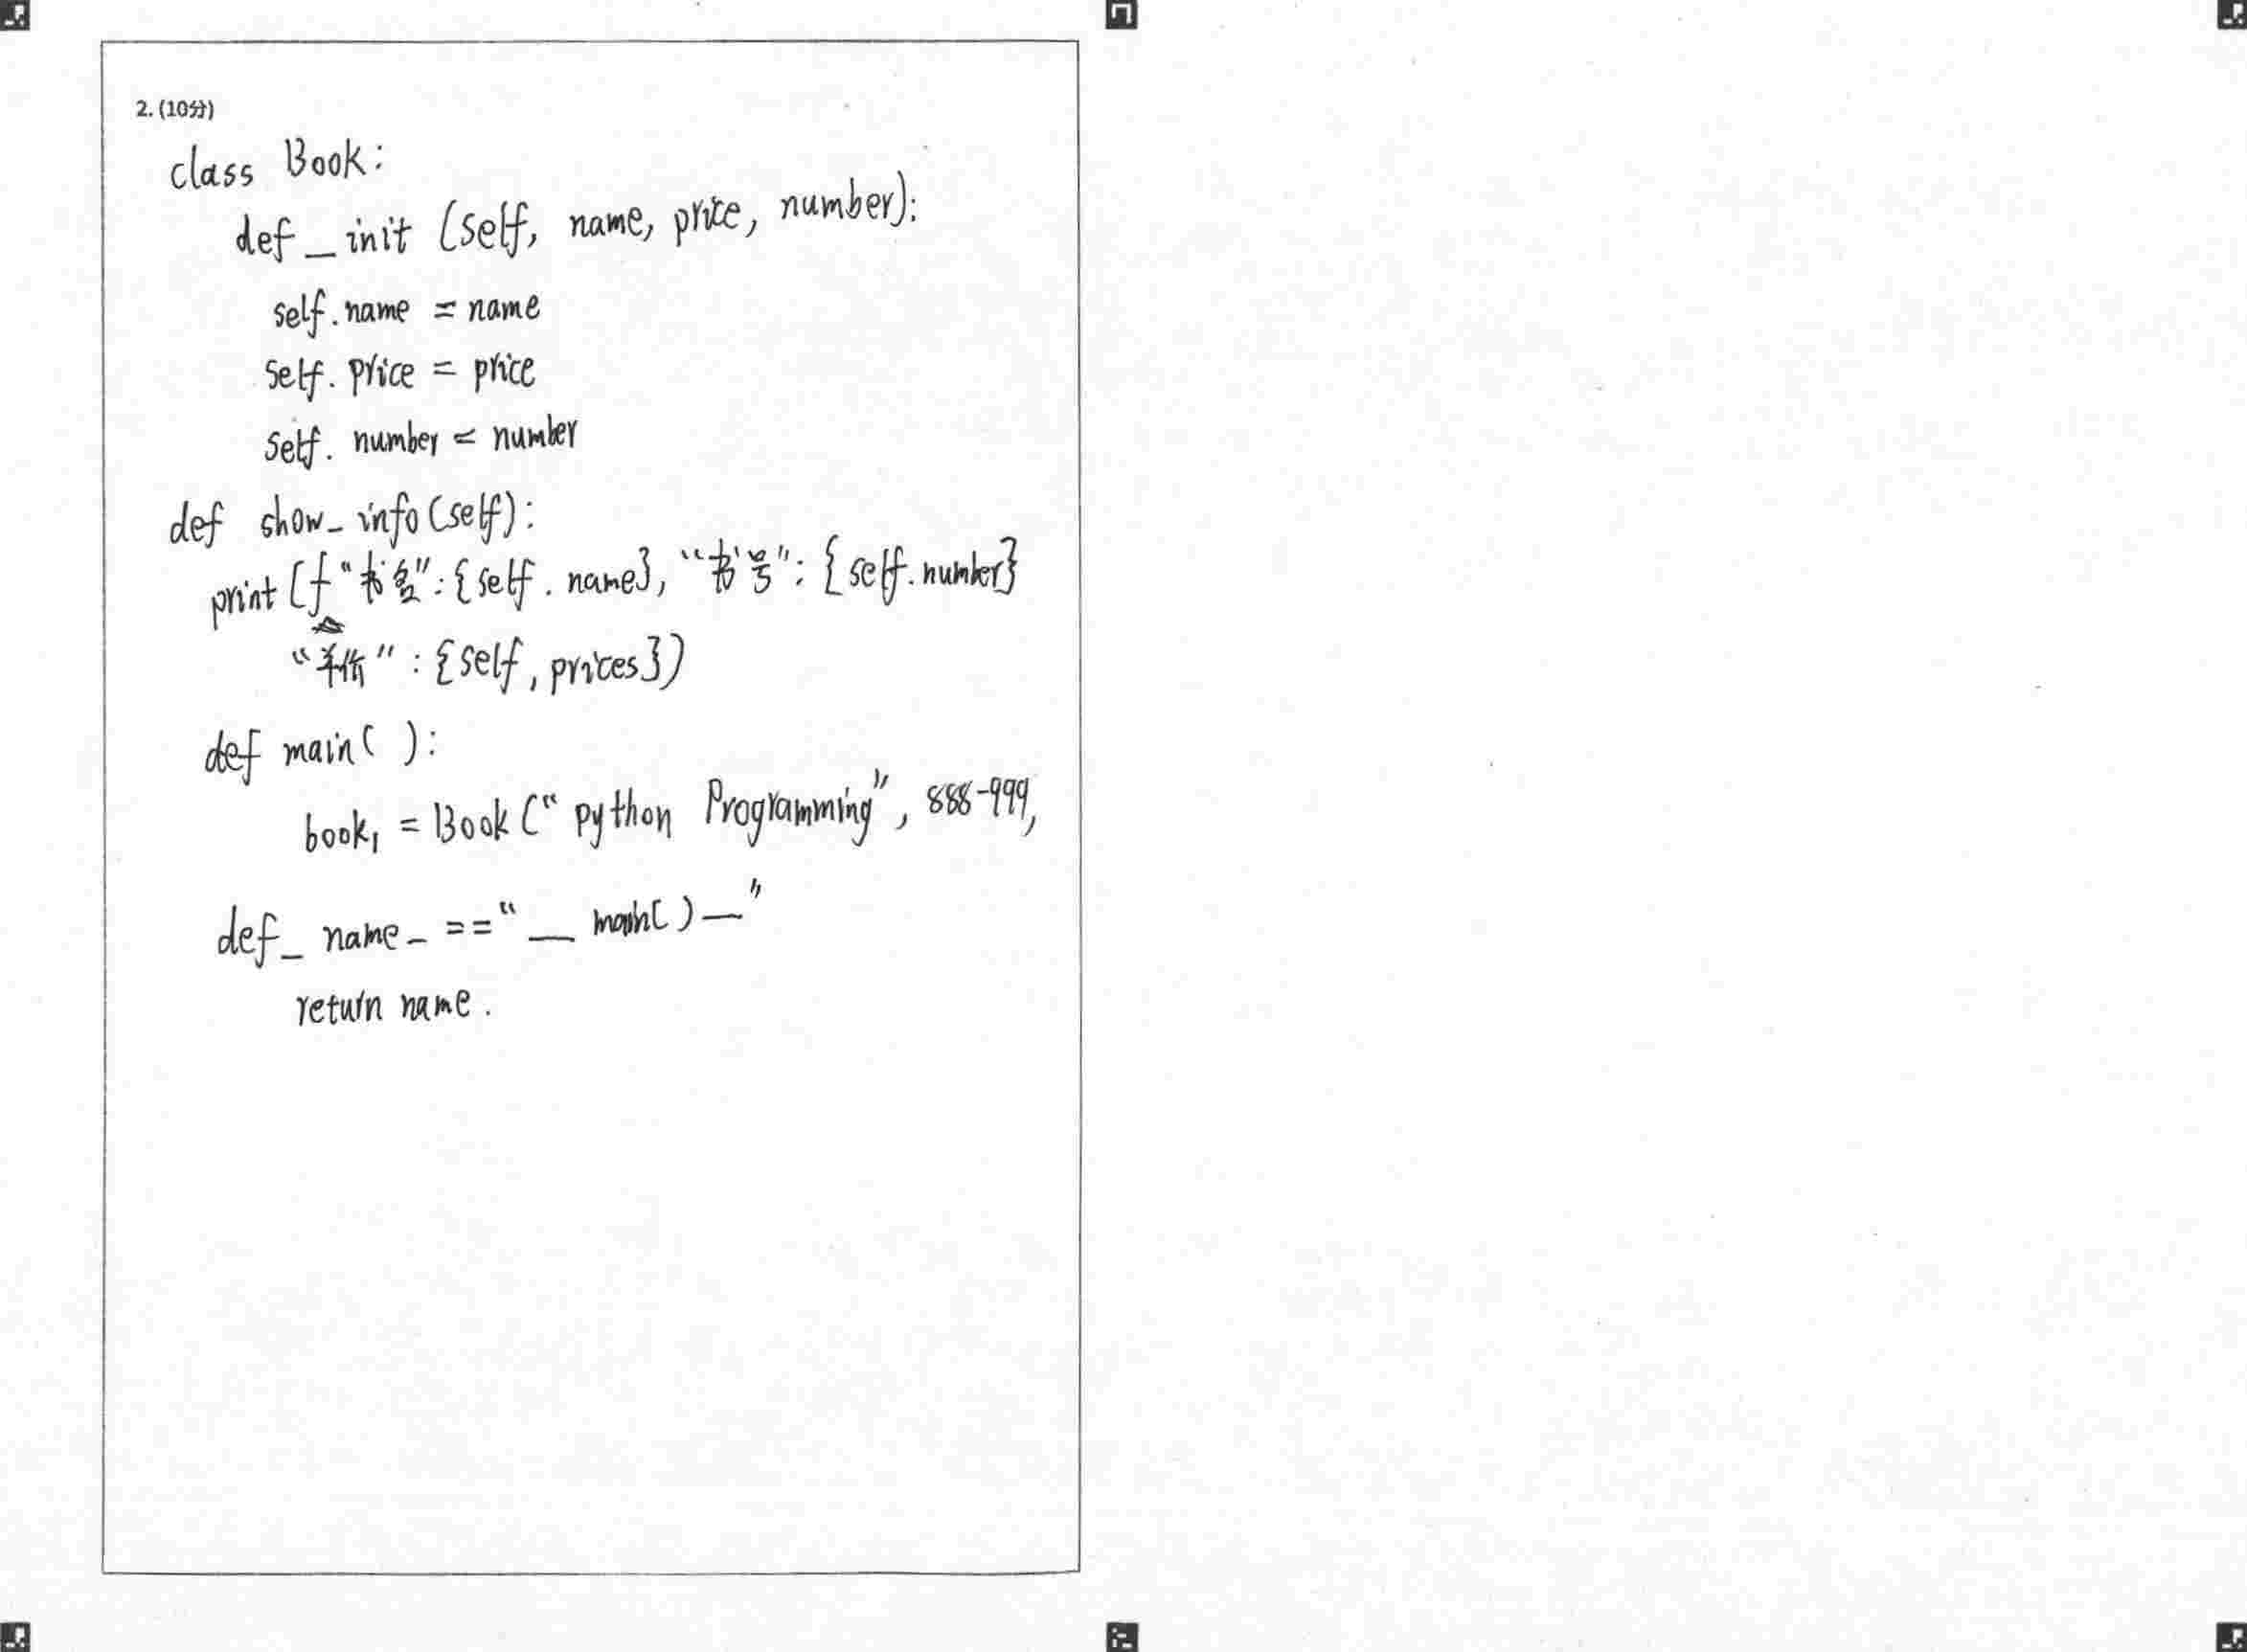 2. (10分)
class Book:
def _ init (self, name, price, number):
self.name = name
self. price = price
self. number = number
def show_ info (self):
print (f "书名": {self. name}, "书号": {self.number}
"单价": {self, prices})
def main( ):
book1 = Book (" python Programming", 888-999,
def _ name _ == " __ main( ) __"
return name.